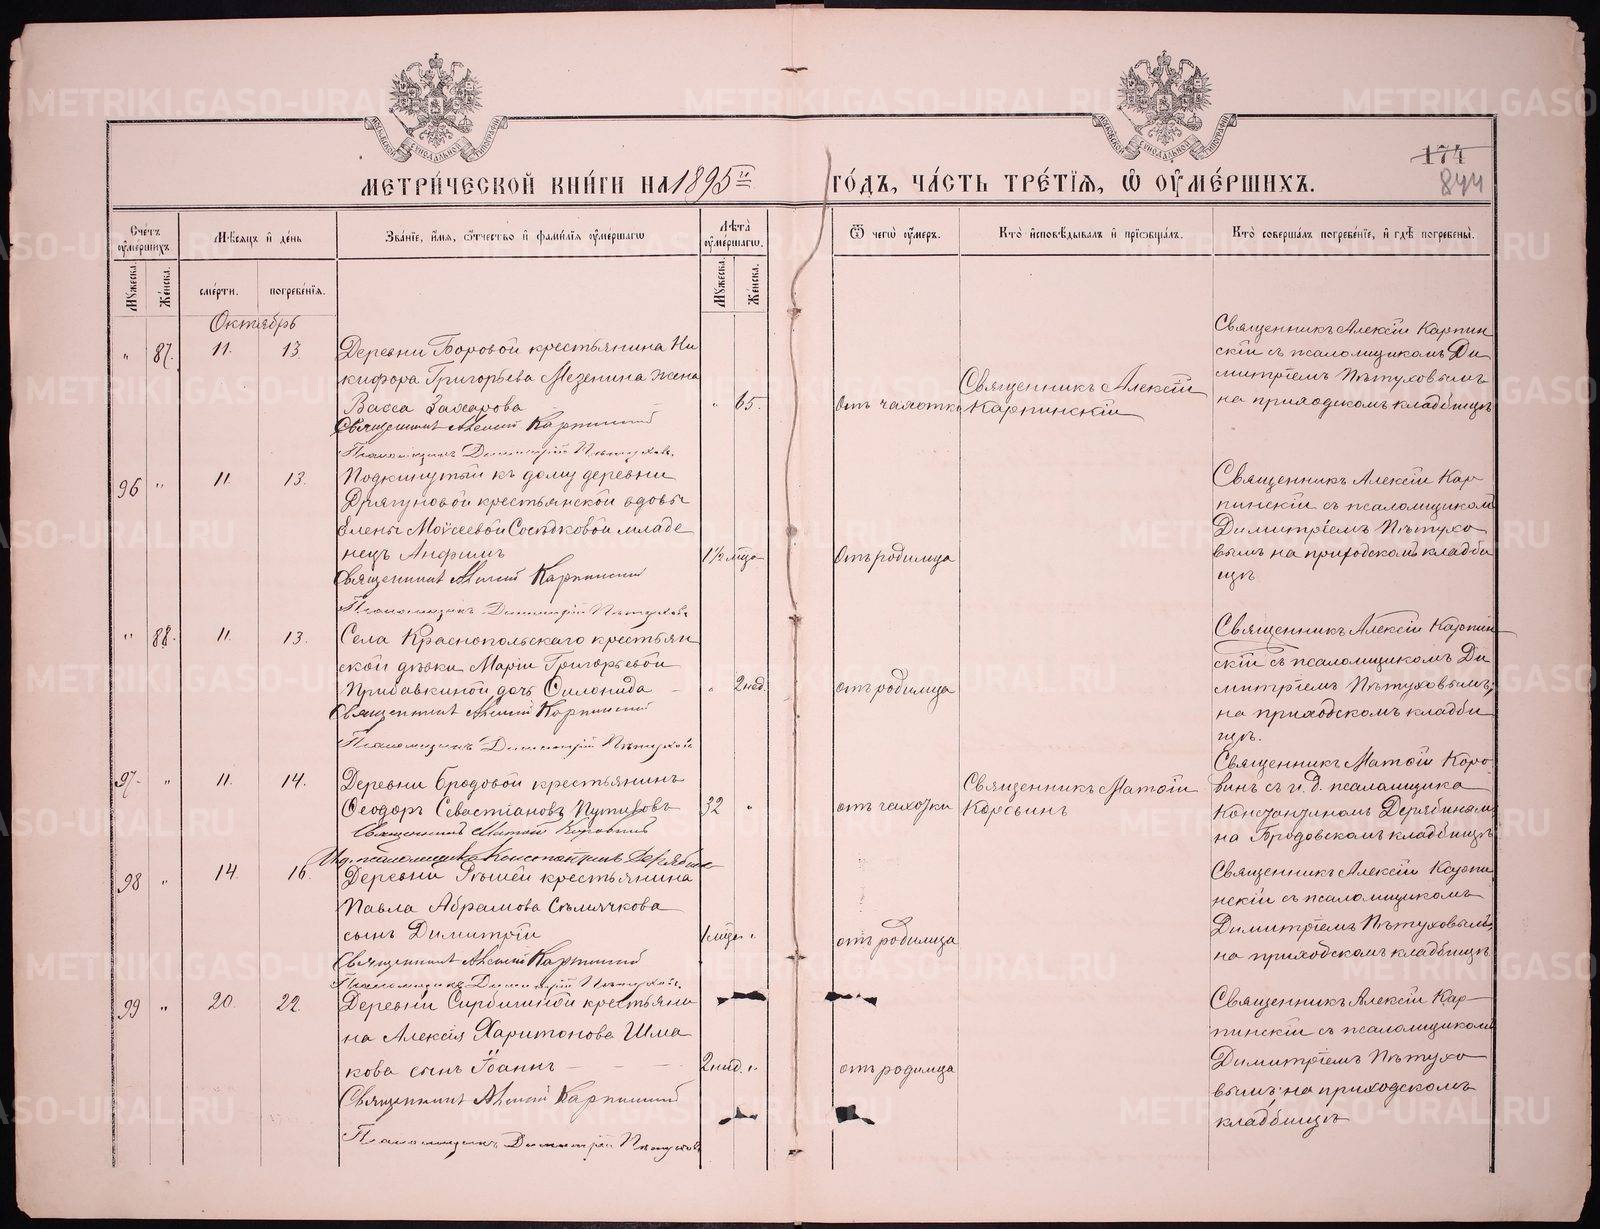 МЕТРИ́ЧЕСКОЙ КНИ́ГИ НА 1895 й ГО́ДЪ, ЧА́СТЬ ТРЕ́ТІѦ, Ѡ҆ ОУ҆МЕ́РШИХЪ.
174
844
Сче́тъ оу҆ме́ршихъ
Мꙋ́жеска.
Же́нска.
Мѣ́сѧцъ и҆ де́нь
сме́рти.
погребе́нїѧ.
Зва́нїе, и҆́мѧ, ѻ҆́тчество и҆ фами́лїѧ оу҆ме́ршагѡ
Лѣ́та оу҆ме́ршагѡ.
Мꙋ́жеска.
Же́нска.
Ѿ чегѡ̀ оу҆́меръ.
Кто̀ и҆сповѣ́дывалъ и҆ прїѡбща́лъ.
Кто̀ соверша́лъ погребе́нїе, и҆ гдѣ̀ погребены̀.
Октябрь
„ 87. 11. 13.
Деревни Боровой крестьянина Ни
кифора Григорьева Мезенина жена
Васса Захарова
Священникъ Алексій Карпинскій
Псаломщикъ Димитрій Пѣтуховъ.
„ 65.
Отъ чахотки
Священникъ Алексій
Карпинскій
Священникъ Алексій Карпин
скій съ псаломщикомъ Ди
митріемъ Пѣтуховымъ
на приходскомъ кладбищѣ
96 „ 11. 13.
Подкинутый къ дому деревни
Дрягуновой крестьянской вдовы
Елены Моѵсеевой Сосѣдковой младе
нецъ Анфимъ
Священникъ Алексій Карпинскій
Псаломщикъ Димитрій Пѣтуховъ
1½ мѣца
Отъ родимца
Священникъ Алексій Кар
пинскій съ псаломщикомъ
Димитріемъ Пѣтухо
вымъ на приходскомъ кладби
щѣ
„ 88. 11. 13.
Села Краснопольскаго крестьян
ской дѣвки Маріи Григорьевой
Прибавкиной дочь Филонида
Священникъ Алексій Карпинскій
Псаломщикъ Димитрій Пѣтуховъ
„ 2 нед.
отъ родимца
Священникъ Алексій Карпин
скій съ псаломщикомъ Ди
митріемъ Пѣтуховымъ,
на приходскомъ кладби
щѣ.
97. „ 11. 14.
Деревни Бродовой крестьянинъ
Ѳеодоръ Севастіановъ Путиловъ
Священникъ Матѳій Коровинъ
И.д. псаломщика Константинъ Дерябинъ
32 „
отъ чахотки
Священникъ Матѳій
Коровинъ
Священникъ Матѳій Коро
винъ съ и. д. псаломщика
Константиномъ Дерябинымъ
на Бродовскомъ кладбищѣ
98 „ 14. 16.
Деревни
крестьянина
Павла Абрамова Сѣмячкова
сынъ Димитрій
Священникъ Алексій Карпинскій
Псаломщикъ Димитрій Пѣтуховъ.
1 мѣц. „
отъ родимца
Священникъ Алексій Карпи
нскій съ псаломщикомъ
Димитріемъ Пѣтуховымъ,
на приходскомъ кладбищѣ
99 „ 20. 22.
Деревни Сербишиной крестьяни
на Алексія Харитонова Шма
кова сынъ Іоаннъ
Священникъ Алексій Карпинскій
Псаломщикъ Димитрій Пѣтуховъ
2 нед. „
отъ родимца
Священникъ Алексій Кар
пинскій съ псаломщикомъ
Димитріемъ Пѣтухо
вымъ на приходскомъ
кладбищѣ
METRIKI.GASO-URAL.RU